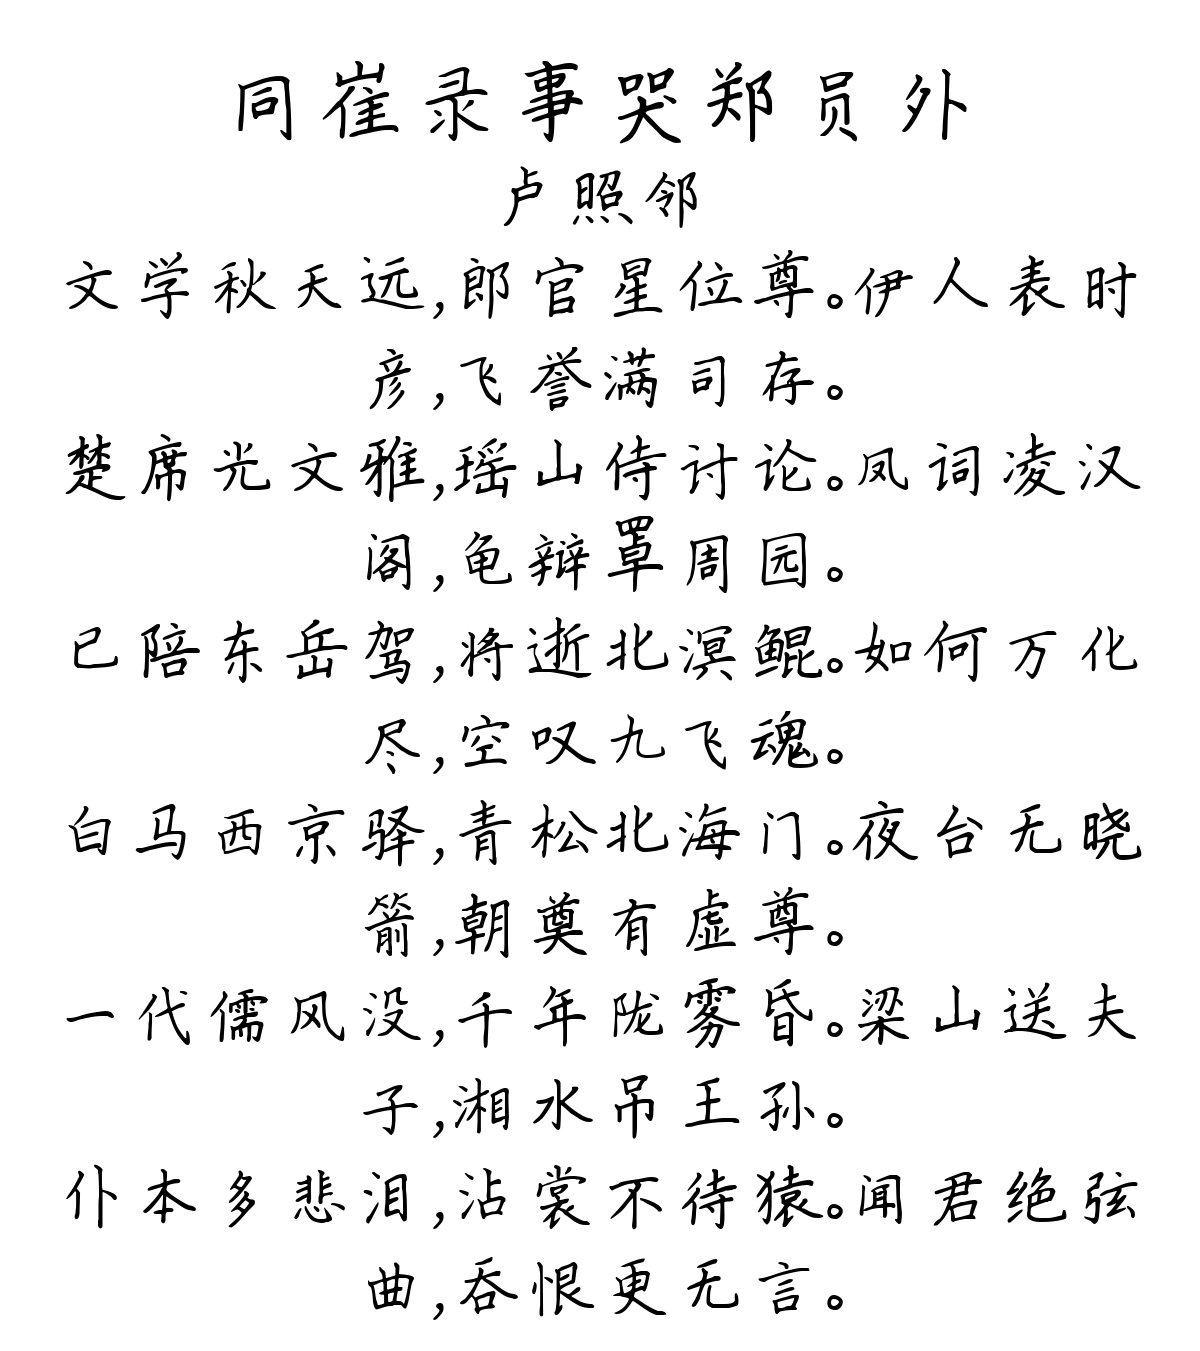 同崔录事哭郑员外
卢照邻
文学秋天远,郎官星位尊。伊人表时
彦,飞誉满司存。
楚席光文雅,瑶山侍讨论。凤词凌汉
阁,龟辩罩周园。
已陪东岳驾,将逝北溟鲲。如何万化
尽,空叹九飞魂。
白马西京驿,青松北海门。夜台无晓
箭,朝奠有虚尊。
一代儒风没,千年陇雾昏。梁山送夫
子,湘水吊王孙。
仆本多悲泪,沾裳不待猿。闻君绝弦
曲,吞恨更无言。